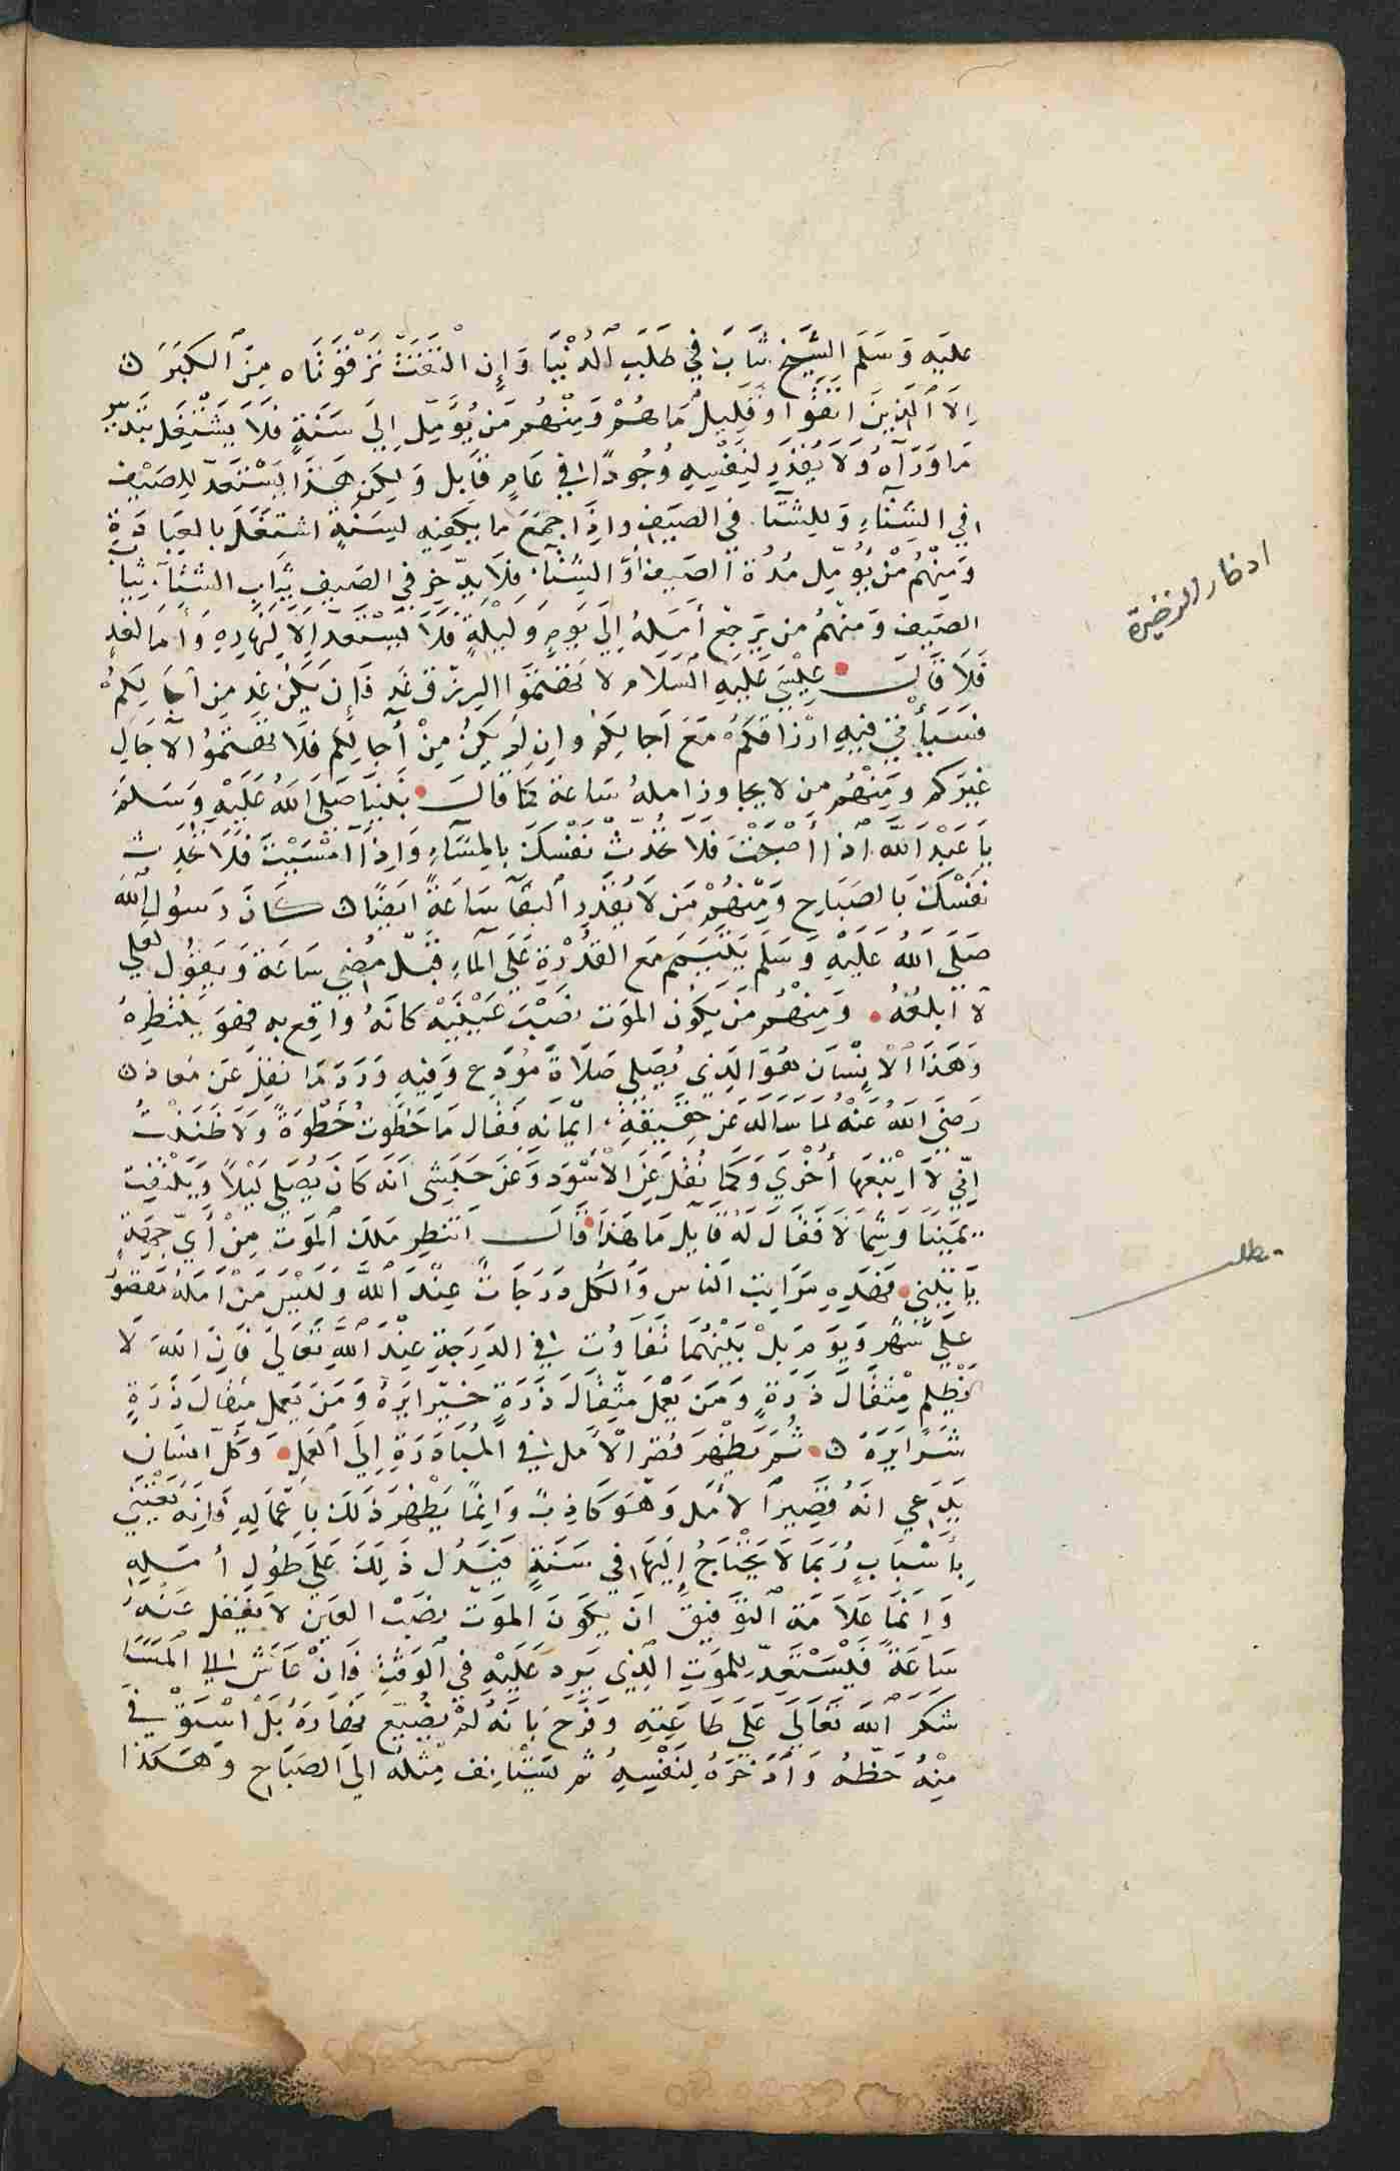 عليه وسلم الشيخ شاب في طلب الدنيا وان التفت ترقوتاه من الكبر
الا الذين اتقوا وقليل ما هم ومنهم من يؤمل الي سنة فلا يشتغل بتدبير
ما ورآه ولا يقدر لنفسه وجودا في عام قابل ولكن هذا يستعد للصيف
في الشتآء وللشتا في الصيف واذا جمع ما يكفيه لسنة اشتغل بالعبادة
ومنهم من يؤمل مدة الصيف او الشتآ فلا يدخر في الصيف ثياب الشتآء ثياب
الصيف ومنهم من يرجع امله الي يوم وليلة فلا يستعد الا لنهاره واما لغد
فلا قال عيسي عليه السلام لا تهتموا الرزق غد فان يكن غد من آجالكم
فسيأتي فيه ارزاقكم مع اجالكم وان لم يكن من آجالكم فلا تهتموا لآجال
غيركم ومنهم من لا يجاوز امله ساعة كما قال نبينا صلى الله عليه وسلم
يا عبد الله اذا اصبحت فلا تحدث نفسك بالمسآء واذا امسيت فلا تحدث
نفسك بالصباح ومنهم من لا يقدر البقآ ساعة ايضا كان رسول الله
صلى الله عليه وسلم يتيمم مع القدرة على المآء قبل مضي ساعة ويقول لعلي
لا ابلغه ومنهم من يكون الموت نصب عينيه كانه واقع به فهو ينتظره
وهذا الانسان هو الذي يصلي صلاة مودع وفيه ورد ما نقل عن معاذ
رضي الله عنه لما ساله عن حقيقة ايمانه فقال ما خطوت خطوة ولا ظننت
اني لا اتبعها أخري وكما نقل عن الاسود وعن حبشي انه كان يصلي ليلا ويلتفت
يمينا وشمالا فقال له قايل ما هذا قال انتظر ملك الموت من أي جهة
ياتيني فهذه مراتب الناس ولكل درجات عند الله وليس من امله مقصور
علي شهر ويوم بل بينهما تفاوت في الدرجة عند الله تعالى فان الله لا
يظلم مثقال ذرة ومن يعمل مثقال ذرة خيرا يره ومن يعمل مثقال ذرة
شرا يره ثم يظهر قصر الامل في المبادرة الى العمل وكل انسان
يدعي انه قصير الامل وهو كاذب وانما يظهر ذلك باعماله فانه يعتني
باسباب ربما لا يحتاج إليها في سنة فيدل ذلك على طول أمله
وانما علامة التوفيق ان يكون الموت نصب العين لا يغفل عنه
ساعة فليستعد للموت الذي يرد عليه في الوقت فان عاش الي المسا
شكر الله تعالى على طاعته وفرح بانه لم يضيع نهاره بل استوفي
منه حظه وادخره لنفسه ثم يستانف مثله الى الصباح وهكذا
ادخار الذخيرة
مطلب